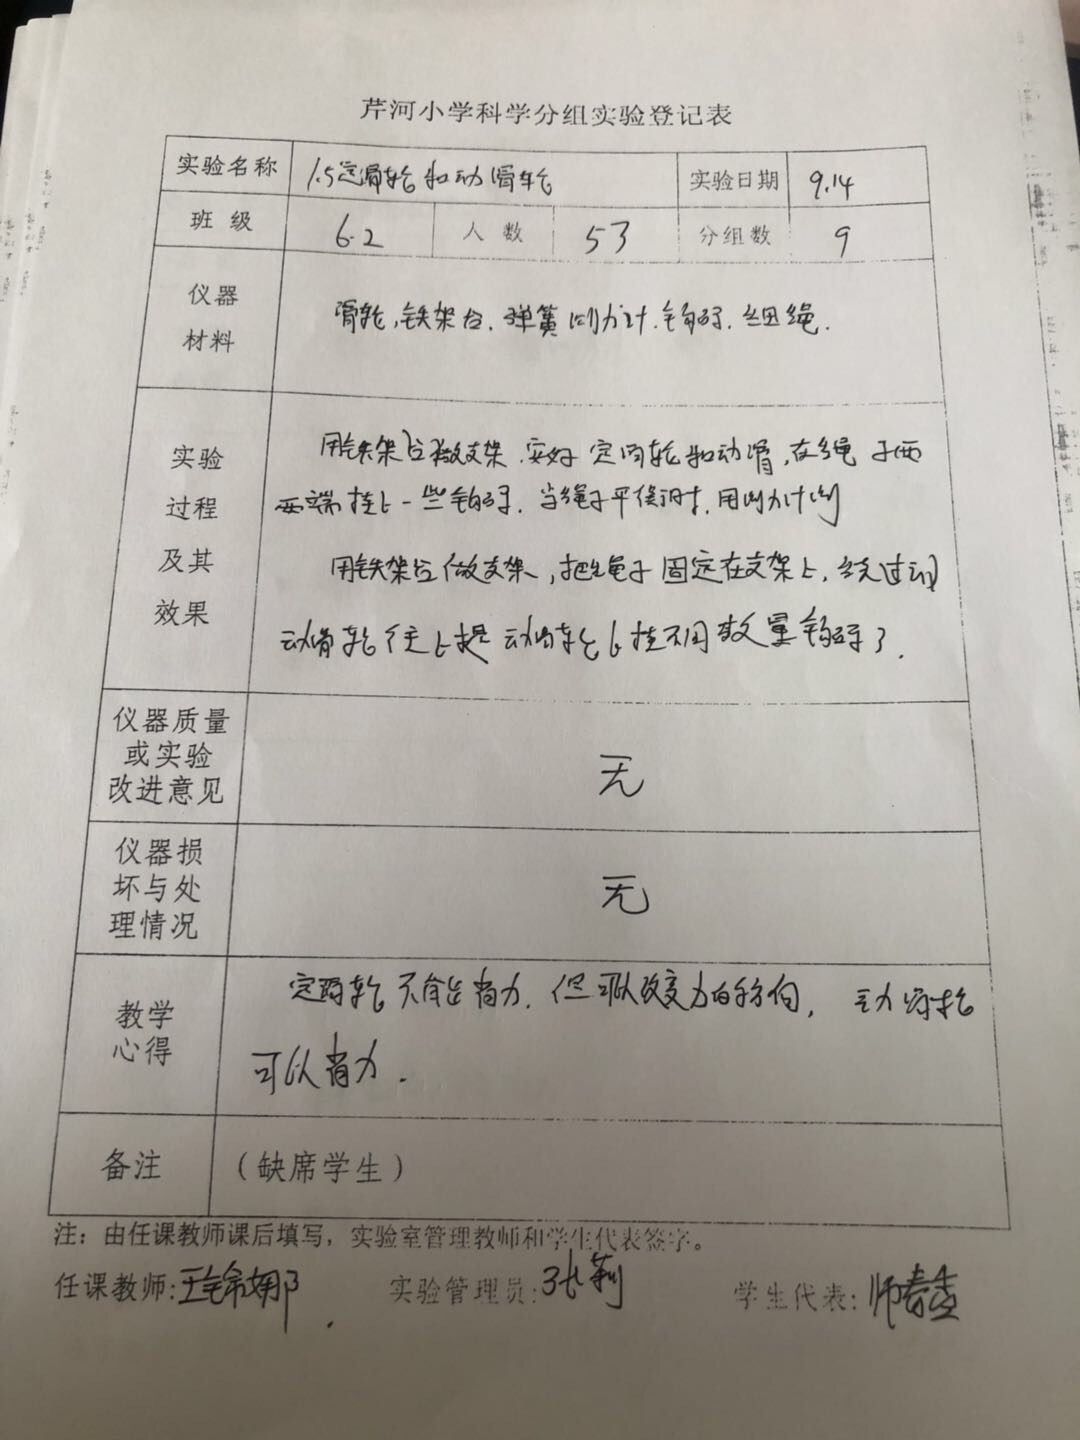 芹河小学科学分组实验登记表
实验名称 1.5定滑轮和动滑轮 实验日期 9.14
班级 6.2 人数 53 分组数 9
仪器材料 滑轮,铁架台.弹簧测力计.钩码.细绳.
实验过程及其效果
用铁架台做支架.安好定滑轮和动滑,在绳子两
两端挂上一些钩码.当绳子平衡时,用测力计测
用铁架台做支架,把绳子固定在支架上,绕过动
动滑轮往上提动滑轮上挂不同数量钩码了.
仪器质量或实验改进意见 无
仪器损坏与处理情况 无
教学心得
定滑轮不能省力.但可以改变力的方向, 动滑轮
可以省力.
备注 (缺席学生)
注:由任课教师课后填写,实验室管理教师和学生代表签字。
任课教师:王锦娜. 实验管理员:张莉 学生代表:师